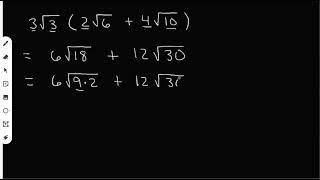 3√3 ( 2√6 + 4√10 )
= 6√18 + 12√30
= 6√9·2 + 12√30